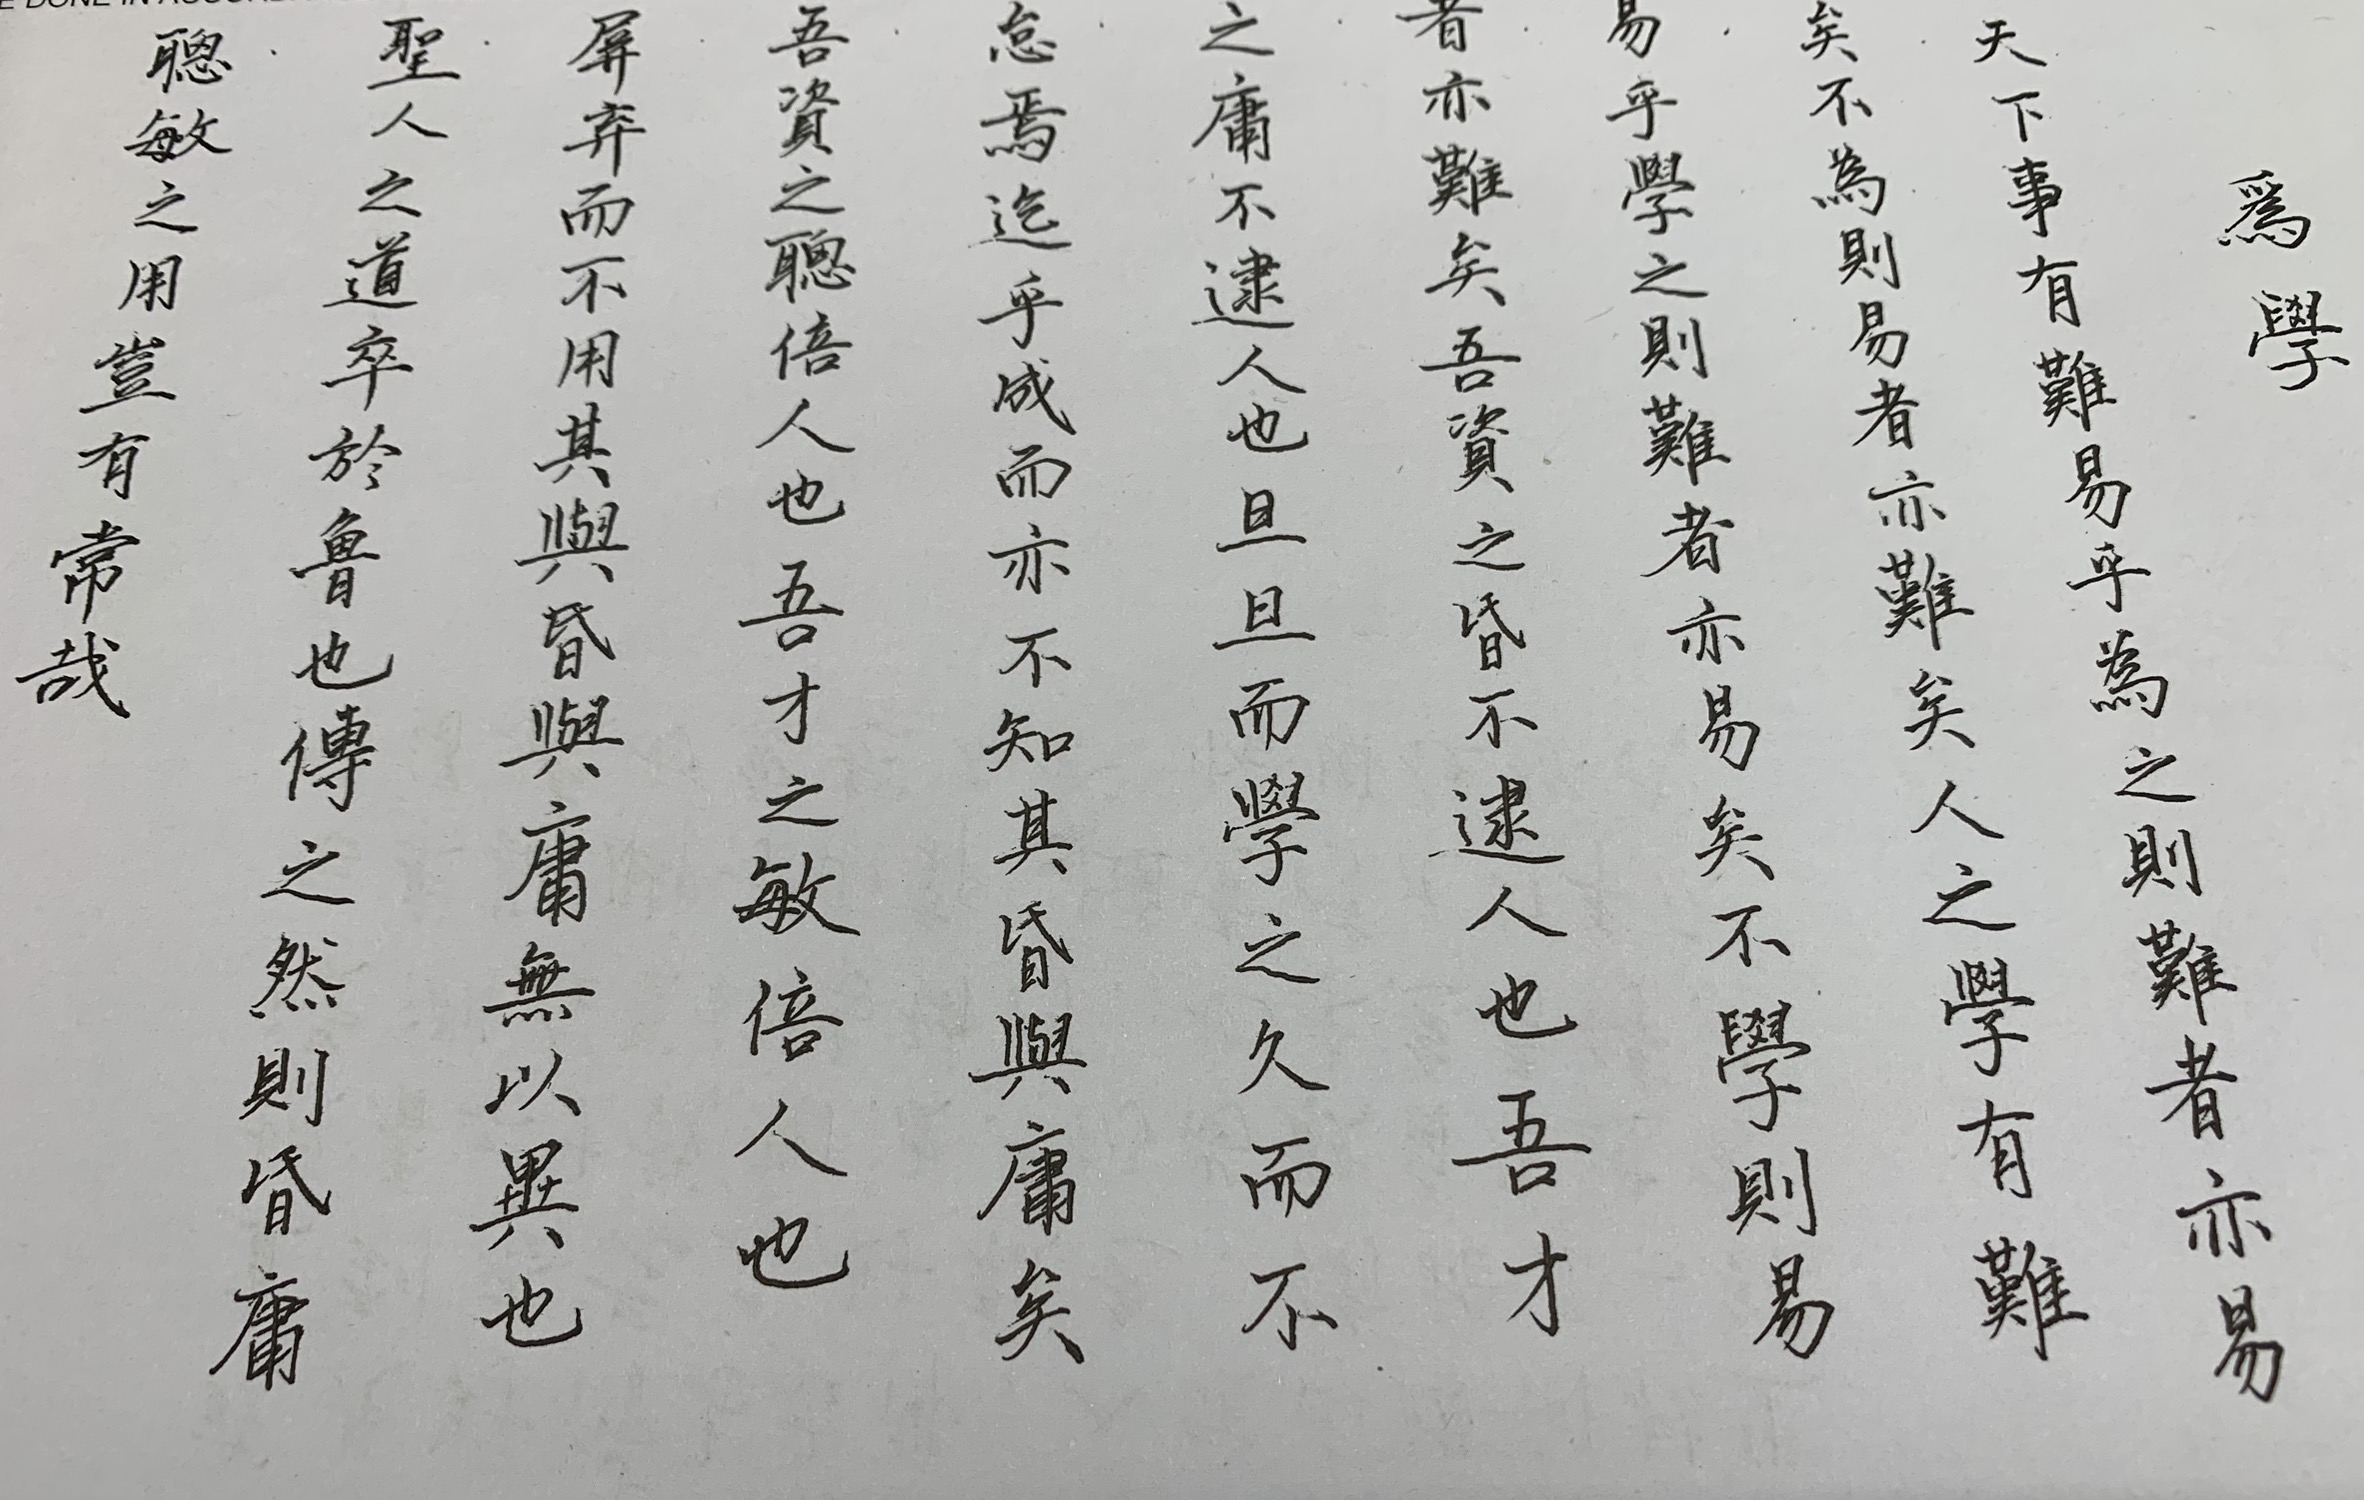 E DONE IN ACCORDA
為學
天下事有難易乎為之則難者亦易
矣不為則易者亦難矣人之學有難
易乎學之則難者亦易矣不學則易
者亦難矣吾資之昏不逮人也吾才
之庸不逮人也旦旦而學之久而不
怠焉迄乎成而亦不知其昏與庸矣
吾資之聰倍人也吾才之敏倍人也
屏弃而不用其與昏與庸無以異也
聖人之道卒於魯也傳之然則昏庸
聰敏之用豈有常哉